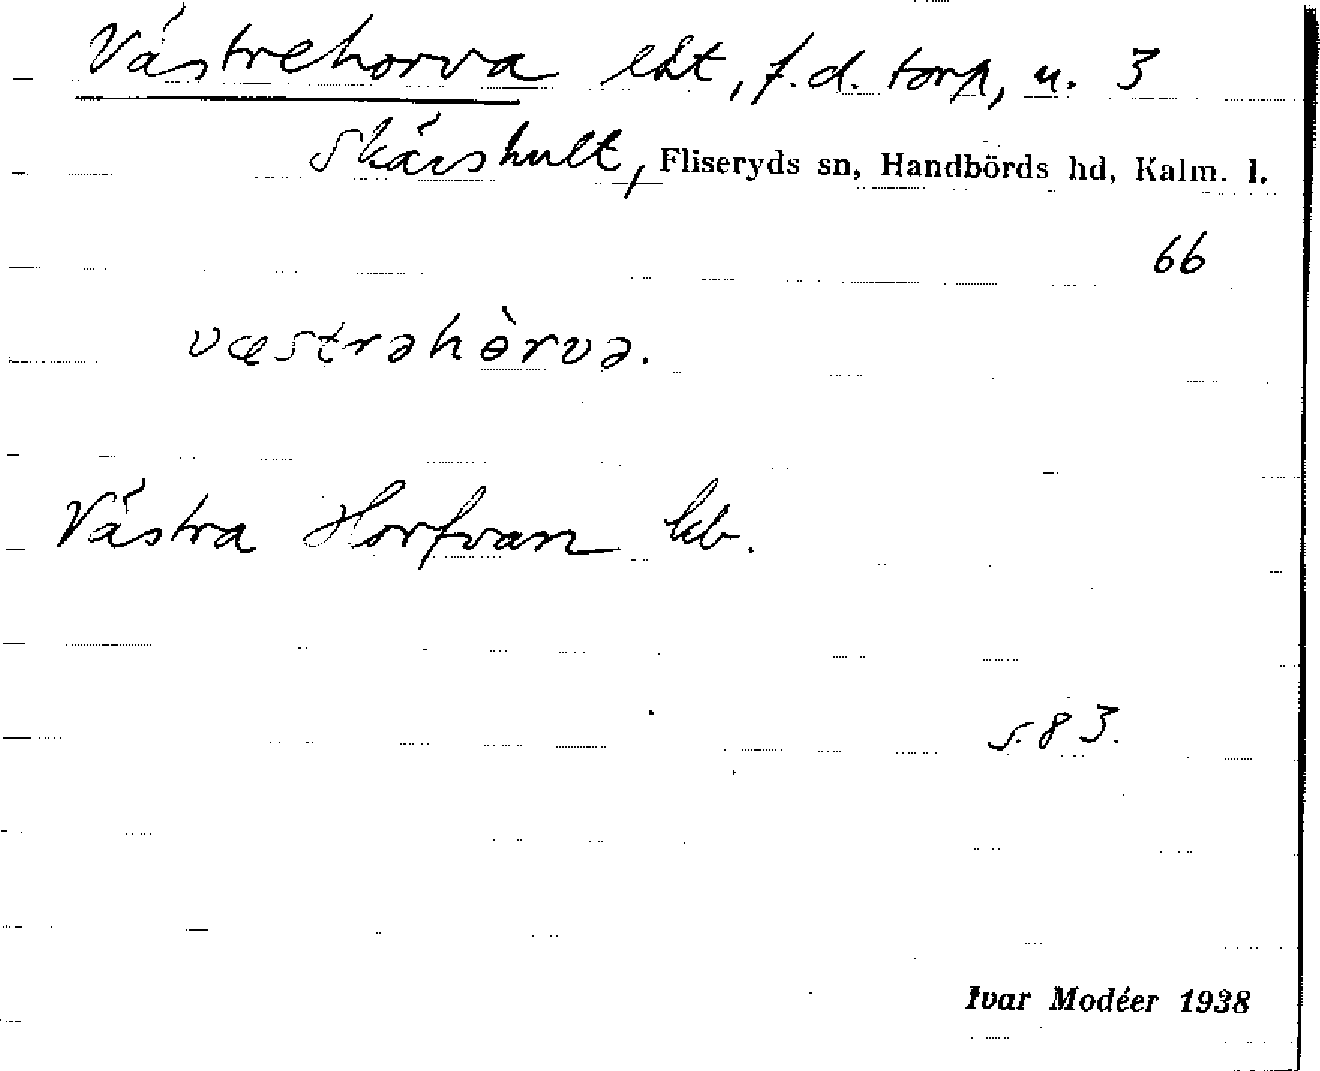 Västrehorva lht, f.d. torp, u. 3
Skärshult, Fliseryds sn, Handbörds hd, Kalm. l.
66
væstrəhɵ̀rvə.
Västra Horfvan kb.
s. 83.
Ivar Modéer 1938